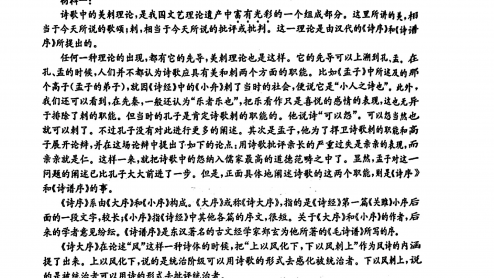 材料一：
诗歌中的美刺理论，是我国文艺理论遗产中富有光彩的一个组成部分。这里所讲的美，相
当于今天所说的歌颂；刺，相当于今天所说的批评或批判。这一理论是由汉代的《诗序》和《诗谱
序》所提出的。
任何一种理论的出现，都有它的先导，美刺理论也是这样。它的先导可以上溯到孔、孟。在
孔、孟的时候，人们并不都认为诗歌应具有美和刺两个方面的职能。比如《孟子》中所述及的那
个高子（孟子的弟子），就因《诗经》中的《小弁》刺了当时的社会，便说它是“小人之诗也”。此外，
我们还可以看到，在先秦，一般还认为“乐者乐也”，把乐看作只是喜悦的感情的表现，这也无异
于排除了刺的职能。但当时的孔子是肯定诗歌刺的职能的。他说诗“可以怨”。可以怨当然也
就可以刺了。不过孔子没有对此进行更多的阐述。其次是孟子，他为了捍卫诗歌刺的职能和高
子展开论辩，并在这场论辩中提出了如下的论点：用诗歌批评亲长的严重过失是亲亲的表现，而
亲亲就是仁。这样一来，就把诗歌中的怨纳入儒家最高的道德范畴之中了。显然，孟子对这一
问题的阐述已比孔子大大前进了一步。但是，正面具体地阐述诗歌的这两个职能，则是《诗序》
和《诗谱序》的事。
《诗序》系由《大序》和《小序》构成。《大序》或称《诗大序》，指的是《诗经》第一篇《关雎》小序后
面的一段文字，较长；《小序》指《诗经》中其他各篇的序文，很短。关于《大序》和《小序》的作者，后
来的学者意见纷纭。《诗谱序》是东汉著名的古文经学家郑玄为他所著的《毛诗谱》所写的序。
《诗大序》在论述“风”这样一种诗体的时候，把“上以风化下，下以风刺上”作为风诗的内涵
提了出来。上以风化下，说的是统治阶级可以用诗歌的形式去感化被统治者。下以风刺上，说
的是被统治者可以用诗的形式去批评统治者。